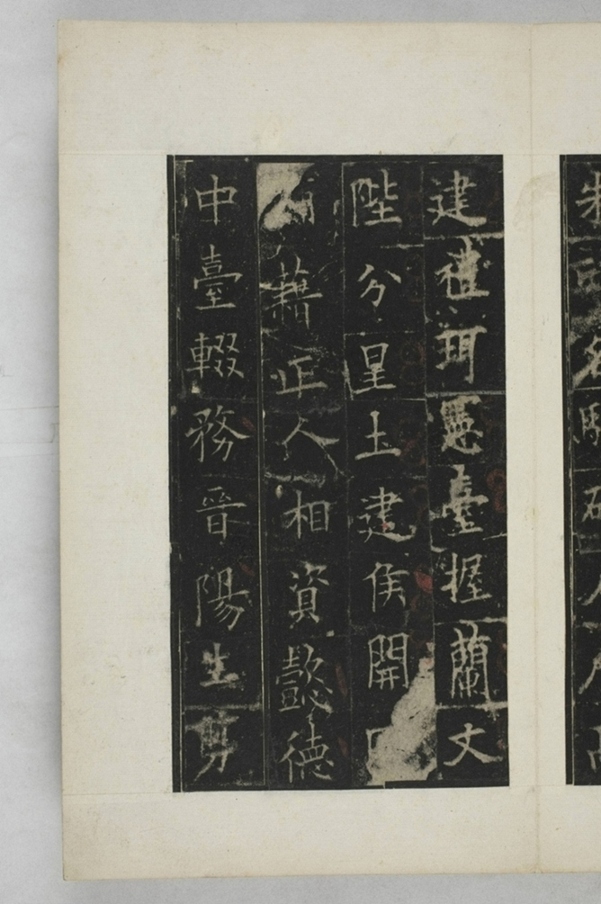 建禮珥憲臺握蘭文
陛分星土建侯開
藉正人相資懿德
中臺輟務晉陽生剪